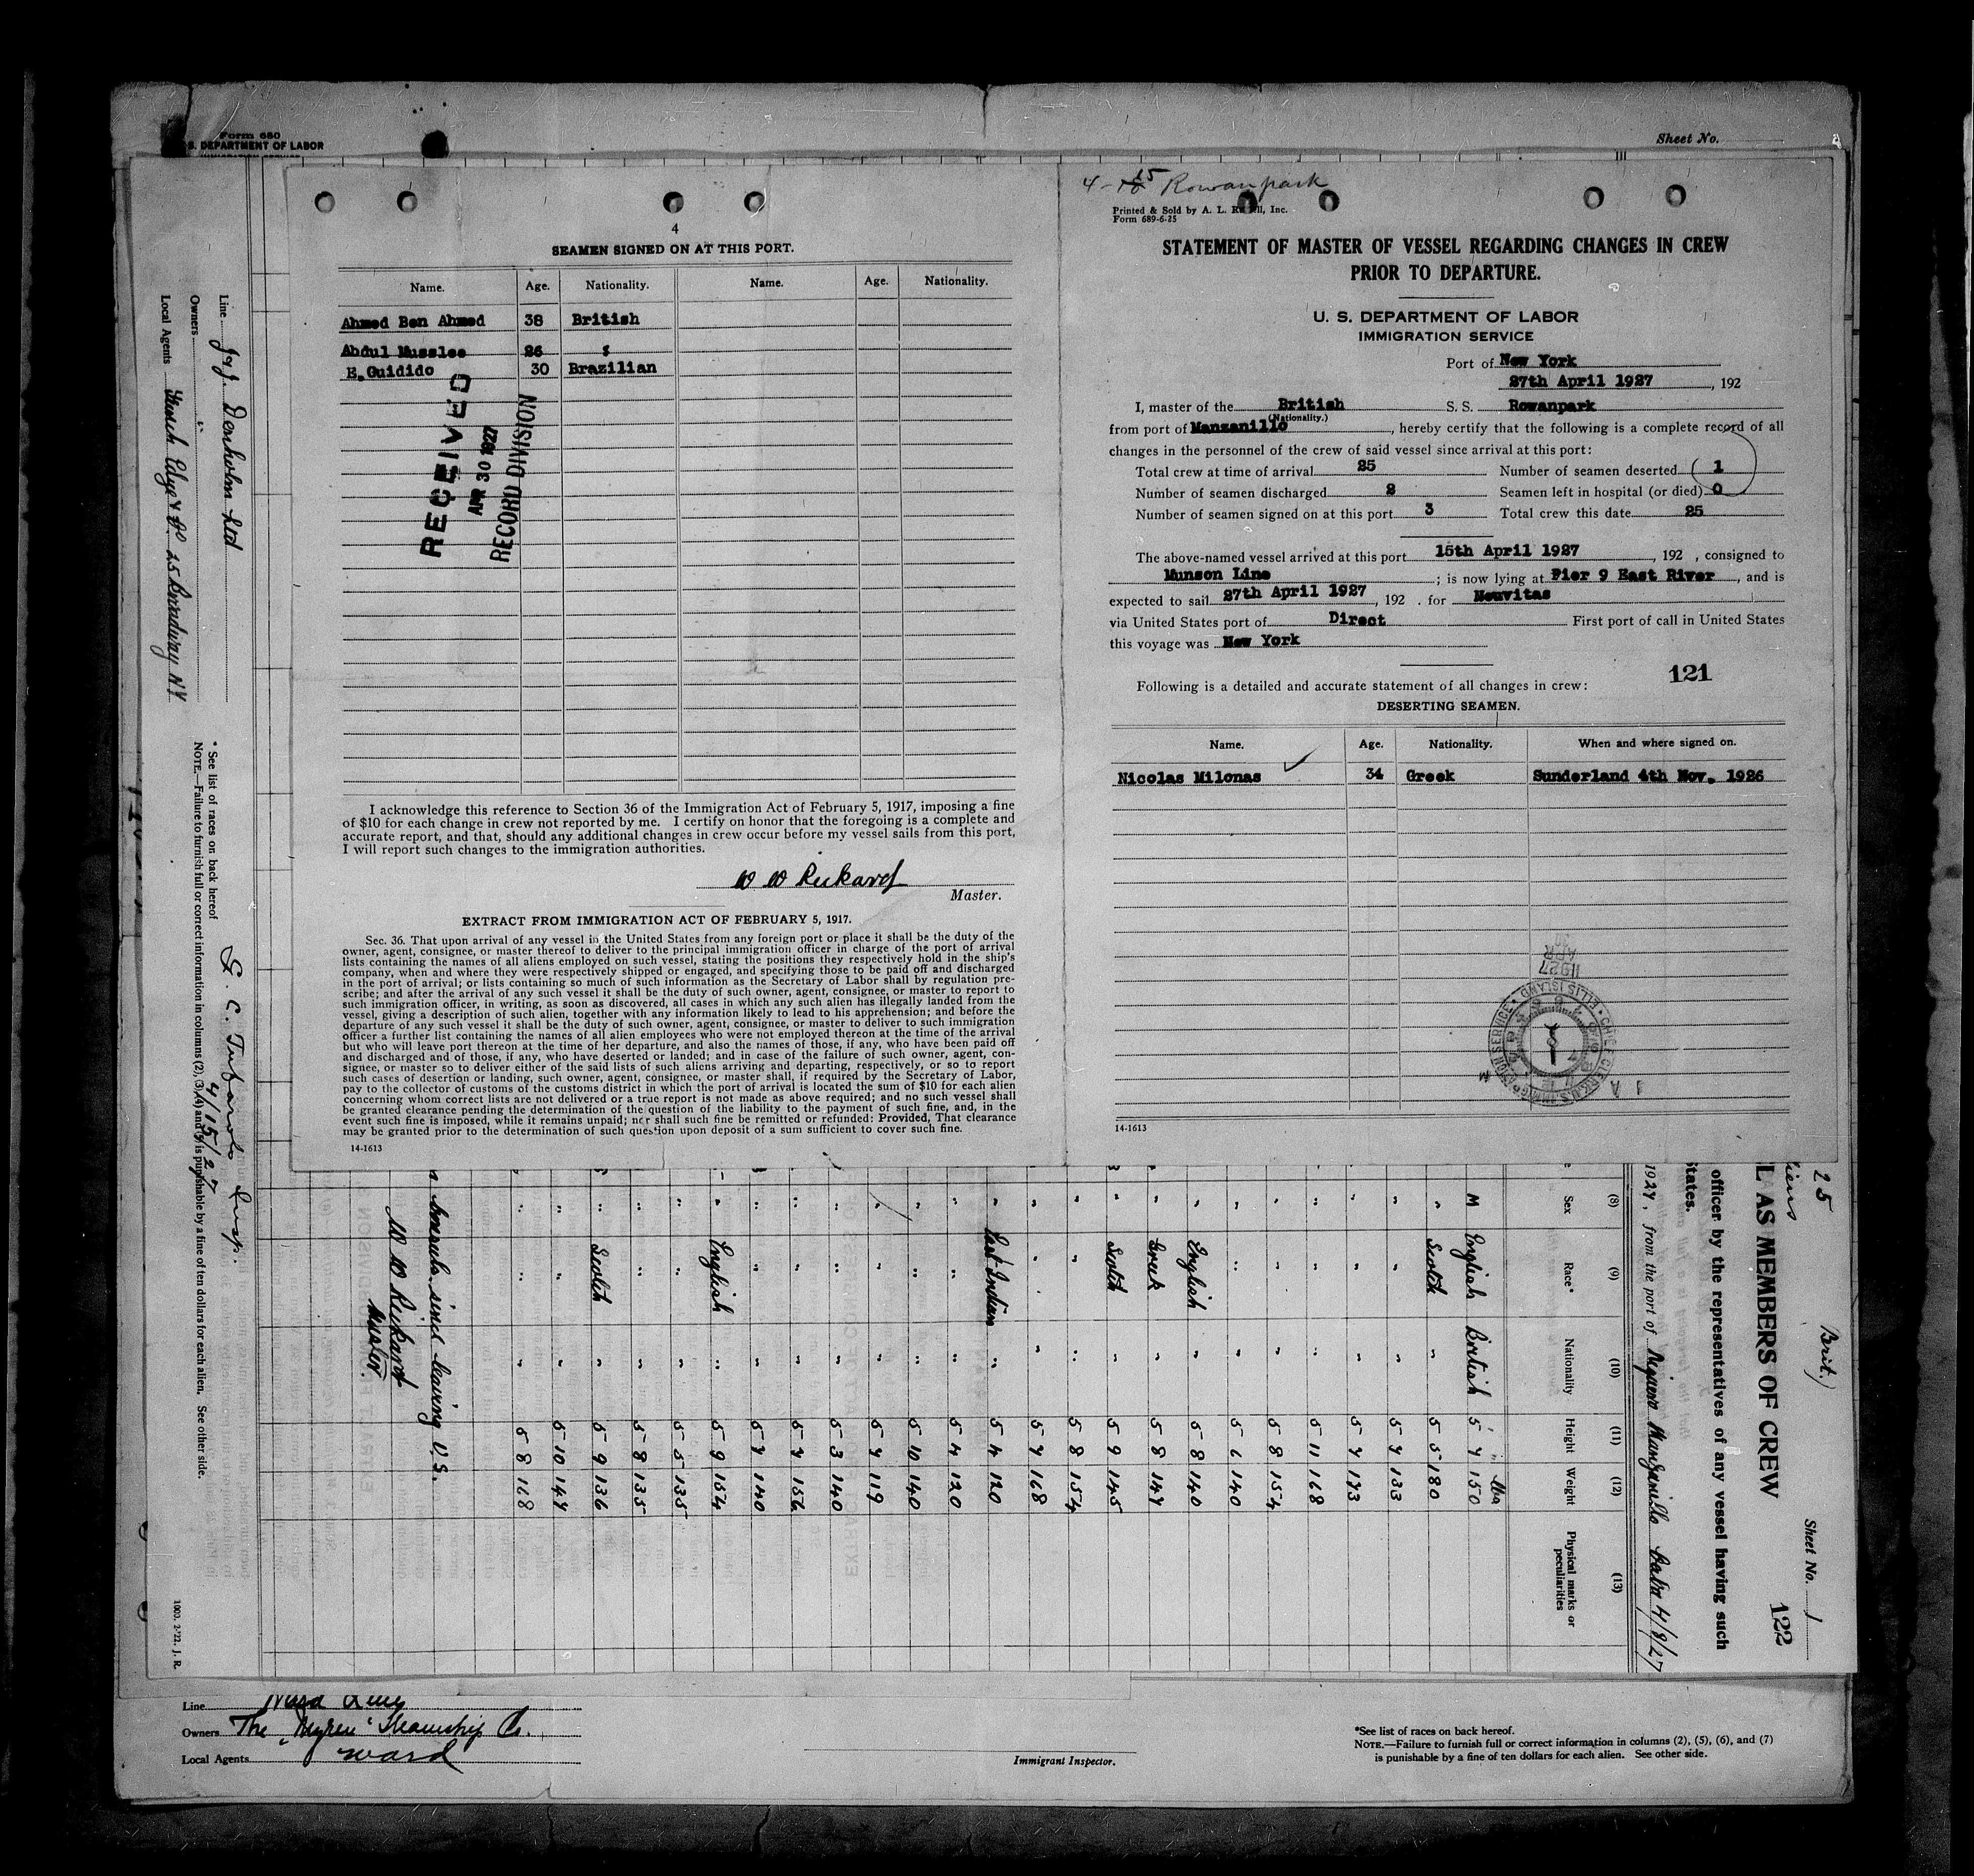 Form 680
S. DEPARTMENT OF LABOR
Sheet No.
4
SEAMEN SIGNED ON AT THIS PORT.
Name. Age. Nationality. Name. Age. Nationality.
Ahmed Ben Ahmed 38 British
Abdul Musslee 26 "
E.Guidido 30 Brazilian
RECEIVED
APR 30 1927
RECORD DIVISION
I acknowledge this reference to Section 36 of the Immigration Act of February 5, 1917, imposing a fine
of $10 for each change in crew not reported by me. I certify on honor that the foregoing is a complete and
accurate report, and that, should any additional changes in crew occur before my vessel sails from this port,
I will report such changes to the immigration authorities.
W W Rickard
Master.
EXTRACT FROM IMMIGRATION ACT OF FEBRUARY 5, 1917.
Sec. 36. That upon arrival of any vessel in the United States from any foreign port or place it shall be the duty of the
owner, agent, consignee, or master thereof to deliver to the principal immigration officer in charge of the port of arrival
lists containing the names of all aliens employed on such vessel, stating the positions they respectively hold in the ship's
company, when and where they were respectively shipped or engaged, and specifying those to be paid off and discharged
in the port of arrival; or lists containing so much of such information as the Secretary of Labor shall by regulation pre-
scribe; and after the arrival of any such vessel it shall be the duty of such owner, agent, consignee, or master to report to
such immigration officer, in writing, as soon as discovered, all cases in which any such alien has illegally landed from the
vessel, giving a description of such alien, together with any information likely to lead to his apprehension; and before the
departure of any such vessel it shall be the duty of such owner, agent, consignee, or master to deliver to such immigration
officer a further list containing the names of all alien employees who were not employed thereon at the time of the arrival
but who will leave port thereon at the time of her departure, and also the names of those, if any, who have been paid off
and discharged and of those, if any, who have deserted or landed; and in case of the failure of such owner, agent, con-
signee, or master so to deliver either of the said lists of such aliens arriving and departing, respectively, or so to report
such cases of desertion or landing, such owner, agent, consignee, or master shall, if required by the Secretary of Labor,
pay to the collector of customs of the customs district in which the port of arrival is located the sum of $10 for each alien
concerning whom correct lists are not delivered or a true report is not made as above required; and no such vessel shall
be granted clearance pending the determination of the question of the liability to the payment of such fine, and, in the
event such fine is imposed, while it remains unpaid; nor shall such fine be remitted or refunded: Provided, That clearance
may be granted prior to the determination of such question upon deposit of a sum sufficient to cover such fine.
14-1613
4-15 Rowanpark
Printed & Sold by A. L. Inc.
Form 689-6-25
STATEMENT OF MASTER OF VESSEL REGARDING CHANGES IN CREW
PRIOR TO DEPARTURE.
U. S. DEPARTMENT OF LABOR
IMMIGRATION SERVICE
Port of New York
27th April 1927, 192
I, master of the British S. S. Rowanpark
(Nationality.)
from port of Manzanillo, hereby certify that the following is a complete record of all
changes in the personnel of the crew of said vessel since arrival at this port:
Total crew at time of arrival 25 Number of seamen deserted 1
Number of seamen discharged 2 Seamen left in hospital (or died) 0
Number of seamen signed on at this port 3 Total crew this date 25
The above-named vessel arrived at this port 15th April 1927, 192 , consigned to
Munson Line; is now lying at Pier 9 East River, and is
expected to sail 27th April 1927, 192 . for Neuvitas
via United States port of Direct First port of call in United States
this voyage was New York
121
Following is a detailed and accurate statement of all changes in crew:
DESERTING SEAMEN.
Name. Age. Nationality. When and where signed on.
Nicolas Milonas 34 Greek Sunderland 4th Nov. 1926
1927
APR
CHIEF CLERK U.S. IMMIGRATION SERVICE ELLIS ISLAND
14-1613
Line J & J. Denholm Ltd
Owners "
Local Agents Funch Edye & Co. 25 Broadway N.Y
* See list of races on back hereof
NOTE.—Failure to furnish full or correct information in columns (2), (3), (4) and (5) is punishable by a fine of ten dollars for each alien. See other side.
4/15/27
1003. 2-'22. J. R.
25
Brit.)
Sheet No. 1
122
L AS MEMBERS OF CREW
officer by the representatives of any vessel having such
States.
1927, from the port of Manzanillo Cuba 4/8/27
(8) (9) (10) (11) (12) (13)
Sex Race* Nationality Height Weight Physical marks or peculiarities
lbs
M English British 5 7 150
" Scotch " 5 5 180
" " " 5 7 133
" " " 5 7 143
" " " 5 11 168
" " " 5 8 154
" " " 5 6 140
" English " 5 8 140
" Greek " 5 8 147
" Scotch " 5 9 145
" " " 5 8 154
" " " 5 7 168
" East Indian " 5 4 120
" " " 5 4 120
" " " 5 10 140
" " " 5 7 119
" " " 5 3 140
" " " 5 7 156
" " " 5 7 140
" English " 5 9 154
" " " 5 5 135
" " " 5 8 135
" Scotch " 5 9 136
" " " 5 10 147
" " " 5 8 168
since leaving U.S.
W W Rickard
Master.
Line Ward Line
Owners The Steamship Co.
Local Agents Ward
Immigrant Inspector.
*See list of races on back hereof.
NOTE.—Failure to furnish full or correct information in columns (2), (5), (6), and (7)
is punishable by a fine of ten dollars for each alien. See other side.